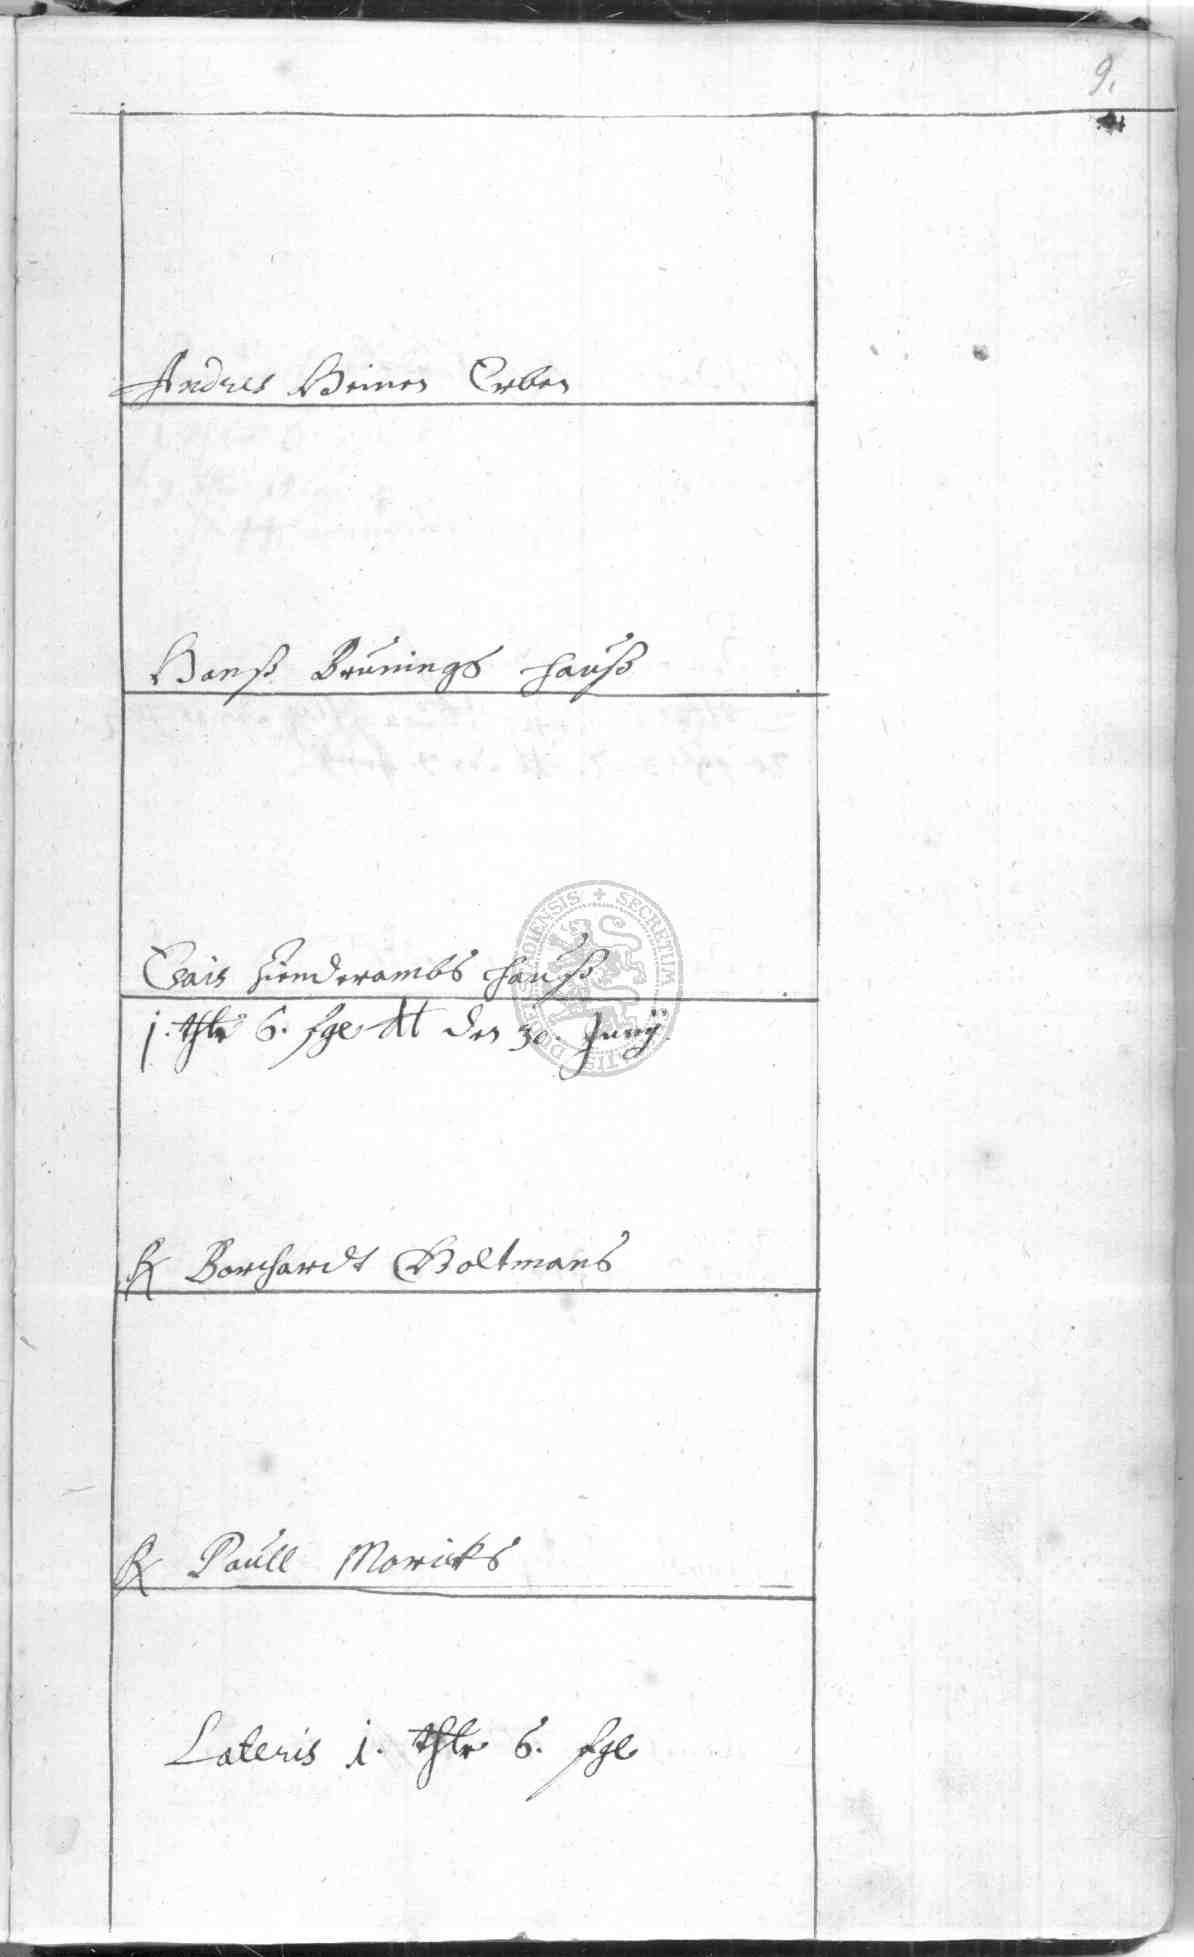 9.
Andres Heines Erben
Hanß Brunings hauß
Hinderambs hauß
1. thlr 6. sgl dt den 30. Junij
Borchardt Holtmans
Paull Moricks
Lateris 1. thlr 6. sgl
SECRETUM